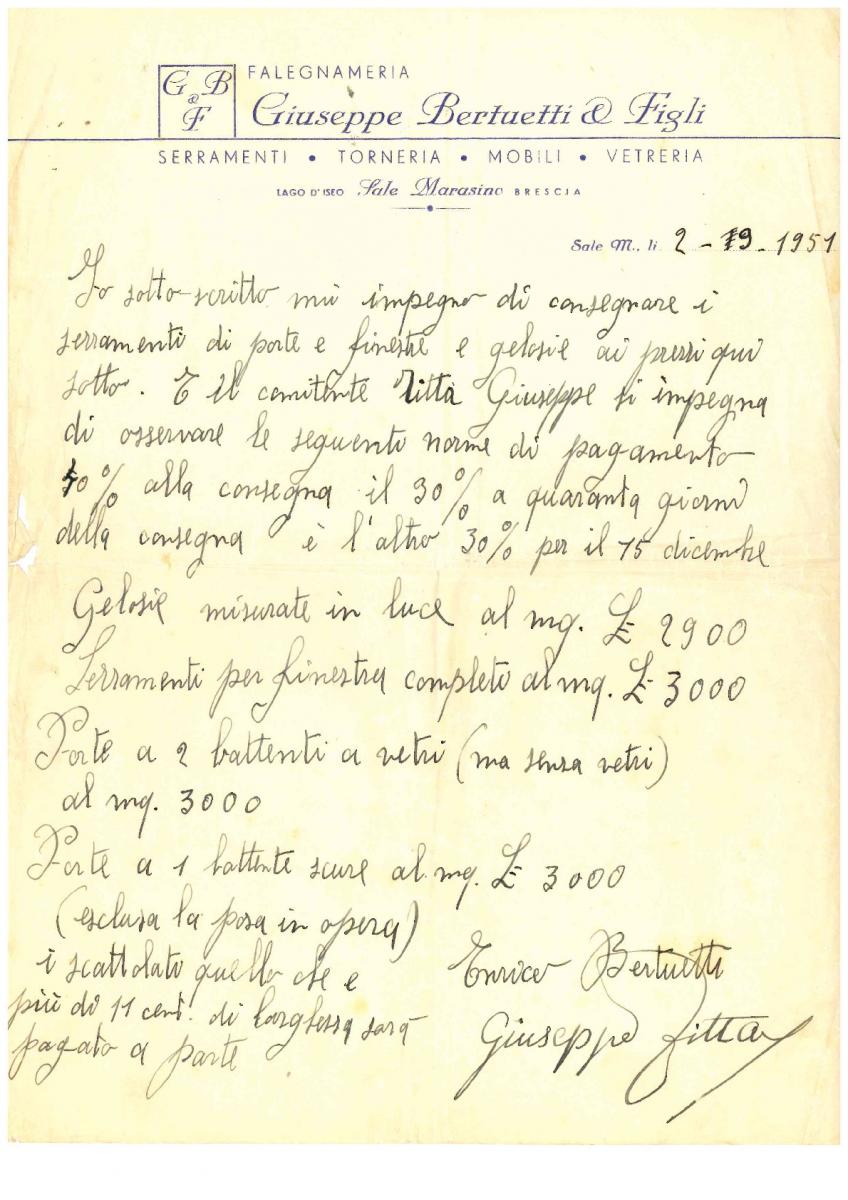 G B
&
F
FALEGNAMERIA
Giuseppe Bertuetti & Figli
SERRAMENTI • TORNERIA • MOBILI • VETRERIA
LAGO D'ISEO Sale Marasino BRESCIA
Sale M., li 2 - 9 - 1951
Io sotto-scritto mi impegno di consegnare i
serramenti di porte e finestre e gelosie ai prezzi qui
sotto. E il comitente Zitta Giuseppe si impegna
di osservare le seguenti norme di pagamento
40% alla consegna il 30% a quaranta giorni
della consegna è l'altro 30% per il 15 dicembre
Gelosie misurate in luce al mq. £ 2900
Serramenti per finestra completi al mq. £ 3000
Porte a 2 battenti a vetri (ma senza vetri)
al mq. 3000
Porte a 1 battente scure al mq. £ 3000
(esclusa la posa in opera)
i scattolati quello che e
più di 11 cent. di larghessa sarà
pagato a parte
Enrico Bertuetti
Giuseppe Zitta